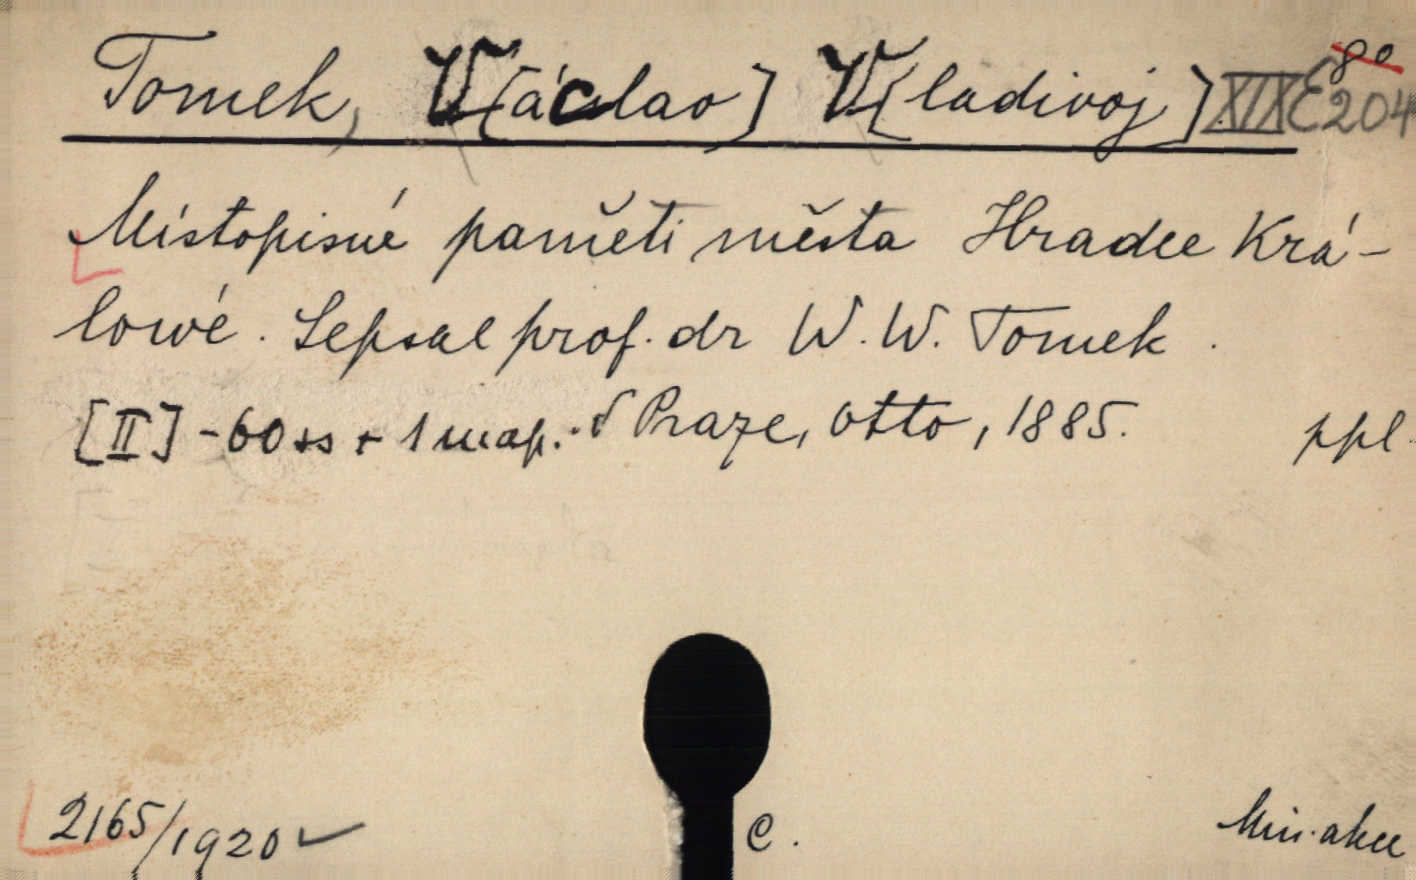 Tomek, V[ácslav] V[ladivoj] XIX E 204
80
Místopisné paměti města Hradce Krá-
lowé. Sepsal prof. dr W. W. Tomek.
[II] - 60 ss + 1 map. V Praze, Otto, 1885. ppl.
2165/1920 ✓ C. Min. akce